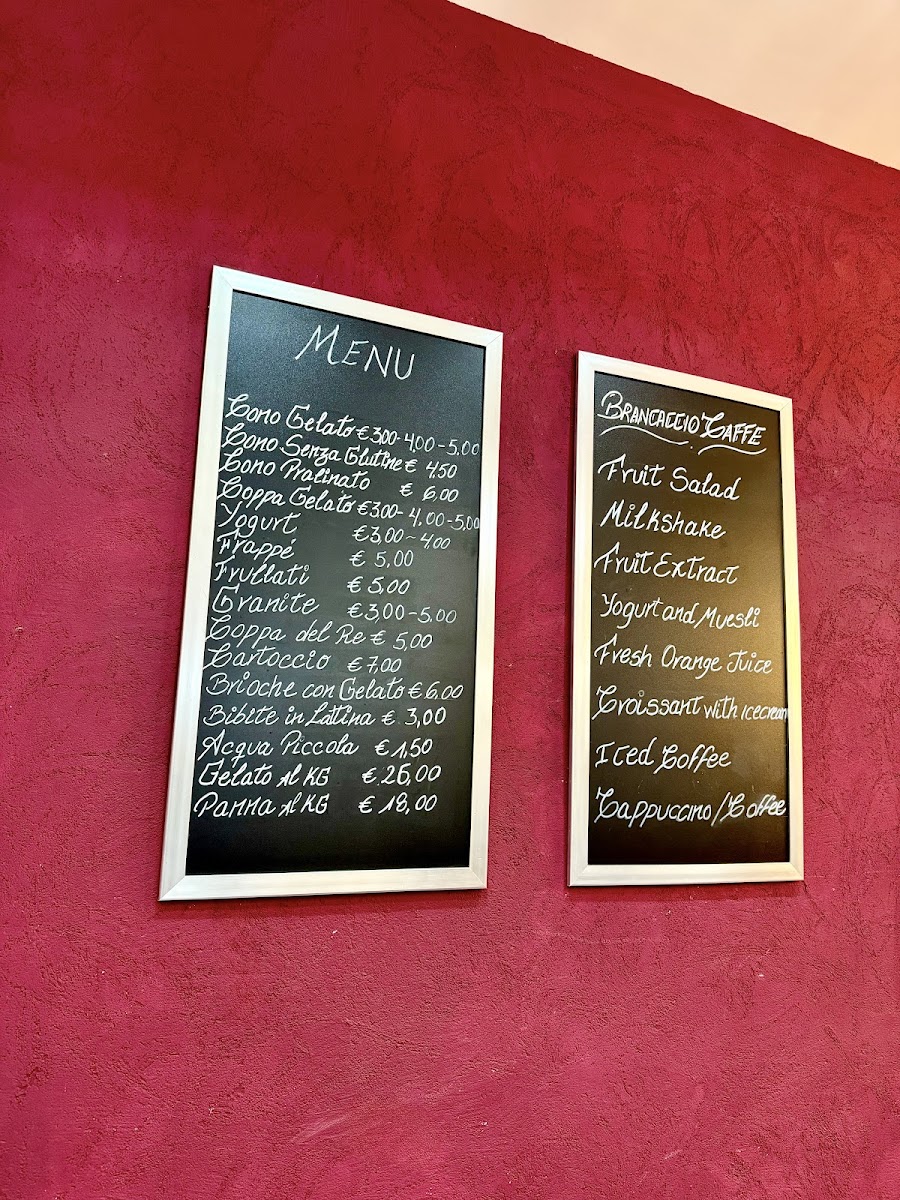 MENU
Cono Gelato € 3,00 - 4,00 - 5,00
Cono Senza Glutine € 4,50
Cono Pralinato € 6,00
Coppa Gelato € 3,00 - 4,00 - 5,00
Yogurt € 3,00 ~ 4,00
Frappé € 5,00
Frullati € 5,00
Granite € 3,00 - 5,00
Coppa del Re € 5,00
Cartoccio € 7,00
Brioche con Gelato € 6,00
Bibite in Lattina € 3,00
Acqua Piccola € 1,50
Gelato Al KG € 26,00
Panna Al KG € 18,00
BRANCACCIO CAFFE
Fruit Salad
Milkshake
Fruit Extract
Yogurt and Muesli
Fresh Orange Juice
Croissant with icecream
Iced Coffee
Cappuccino/Coffee